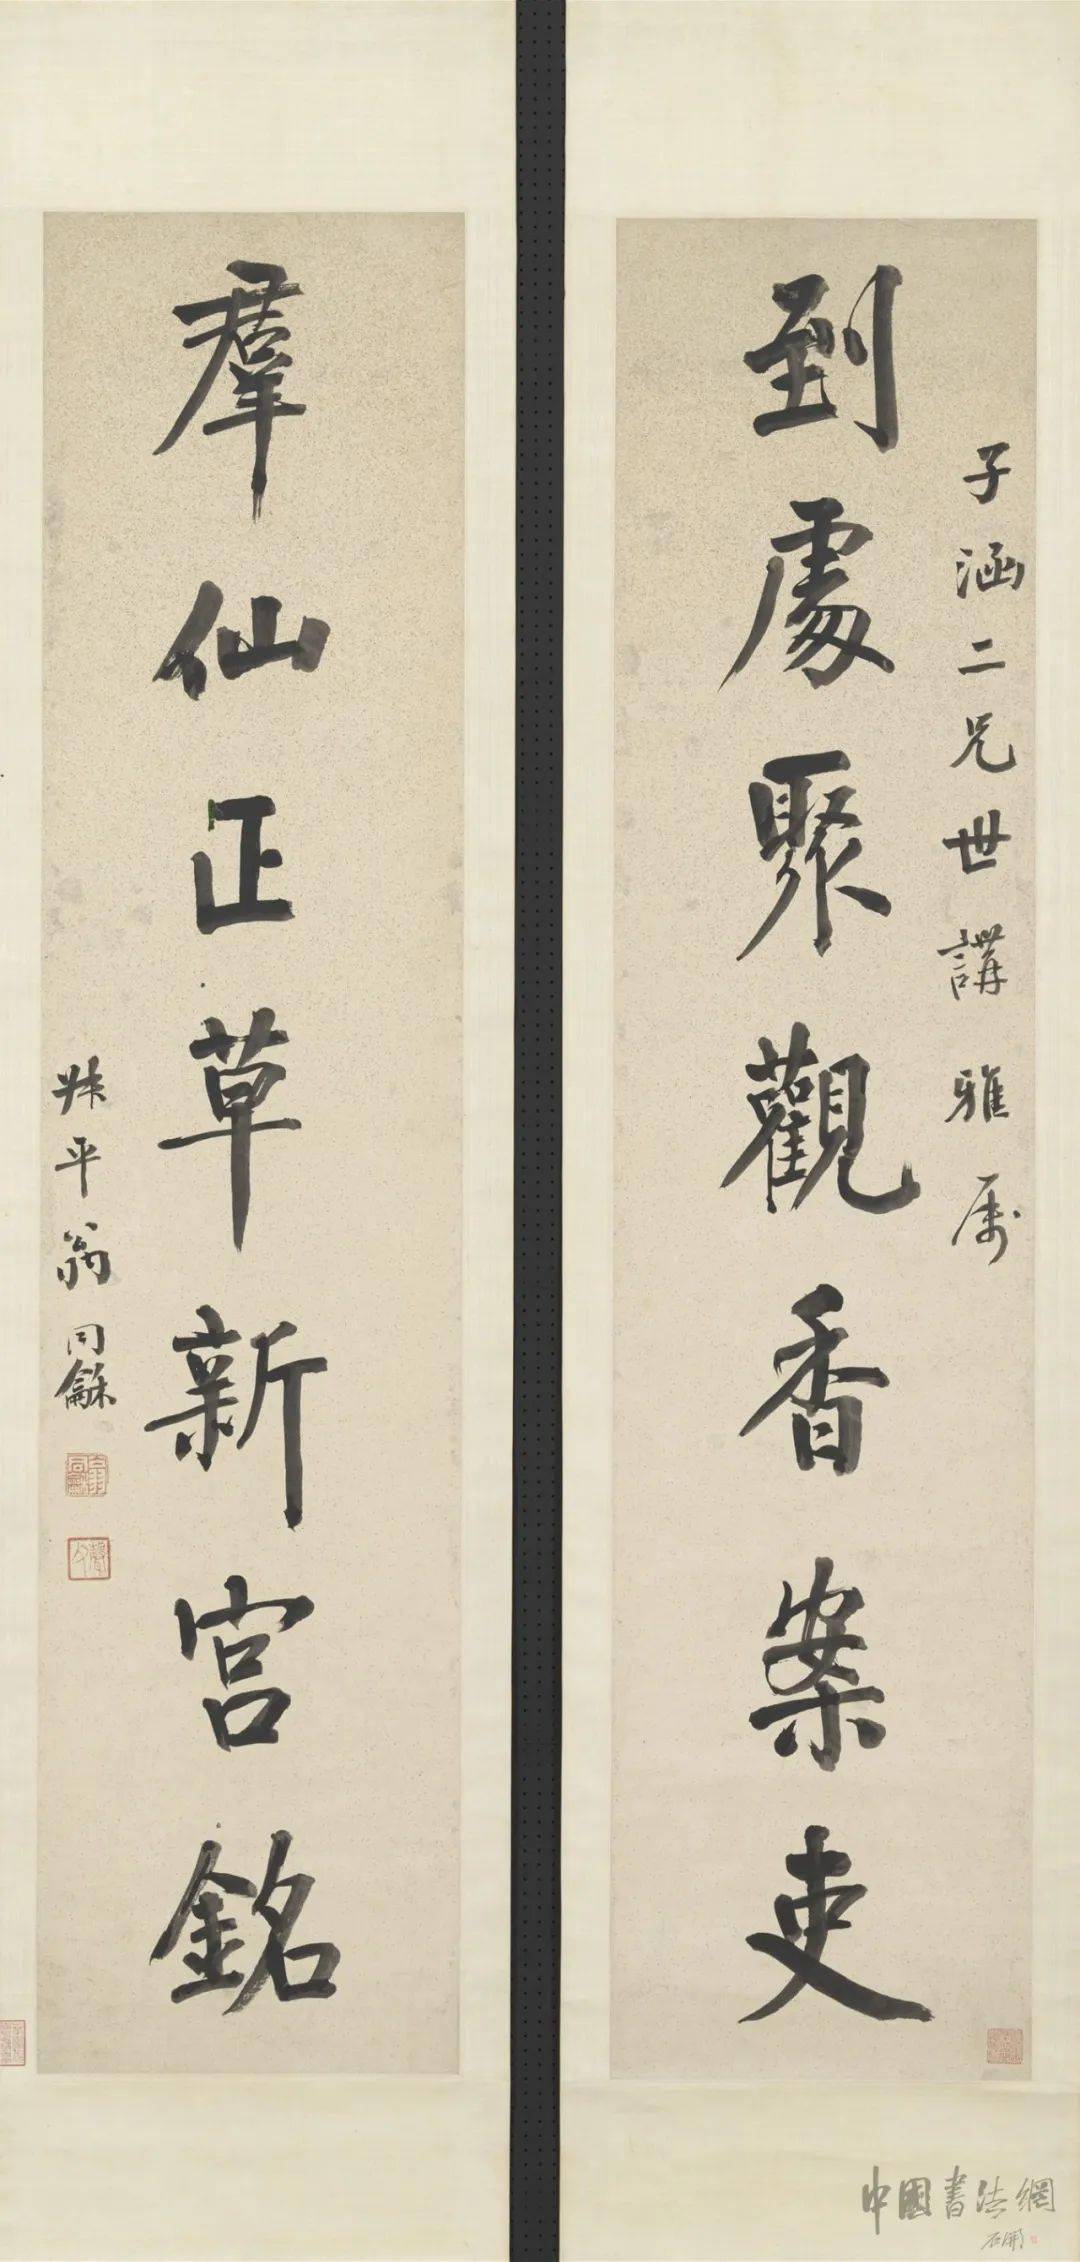 子涵二兄世講雅属
到處聚觀香案吏
羣仙正草新宮銘
叔平翁同龢
中國書法網